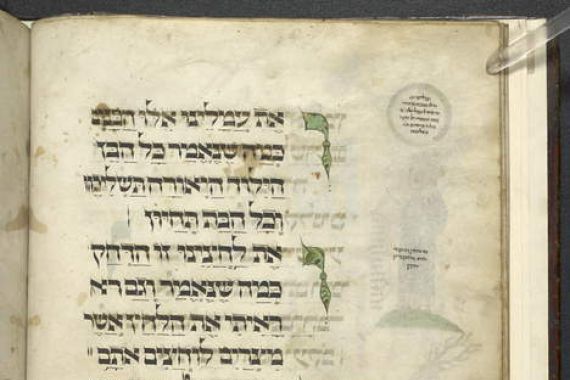 ואת עמלינו אלו הבנים
כמה שנאמר כל הבן
הילוד היאורה תשליכוהו
וכל הבת תחיון
ואת לחצינו זו הדחק
כמה שנאמר וגם רא
ראיתי את הלחץ אשר
מצרים לוחצים אתם